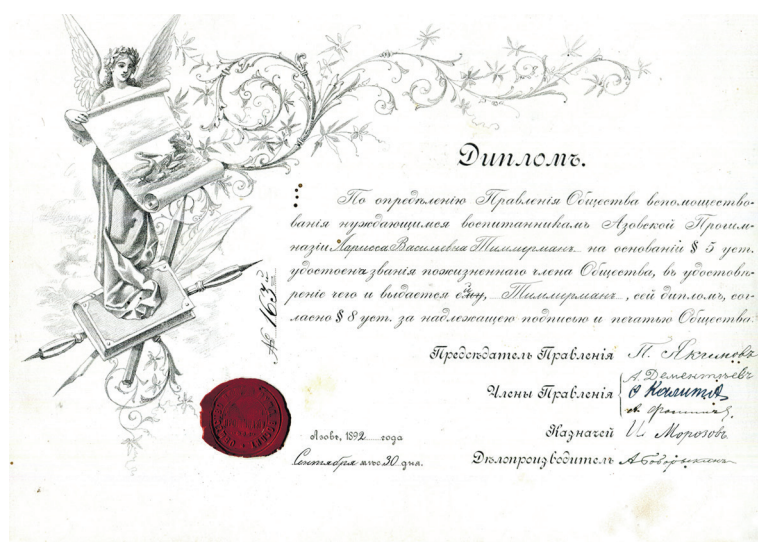 Дипломъ.
По опредѣленію Правленія Общества вспомощество-
ванія нуждающимся воспитанникамъ Азовской Прогим-
назіи, Лариса Васильевна Тиммерманъ на основаніи § 5 уст.
удостоена званія пожизненнаго члена Общества, въ удостовѣ-
реніе чего и выдается ей, Тиммерманъ, сей дипломъ, сог-
ласно § 8 уст. за надлежащею подписью и печатью Общества.
№ 163
Предсѣдатель Правленія П. Якимовъ
А. Дементьевъ
Члены Правленія Калита
Казначей И. Морозовъ
Азовъ, 1892 года
Сентября мѣс. 30 дня.
Дѣлопроизводитель